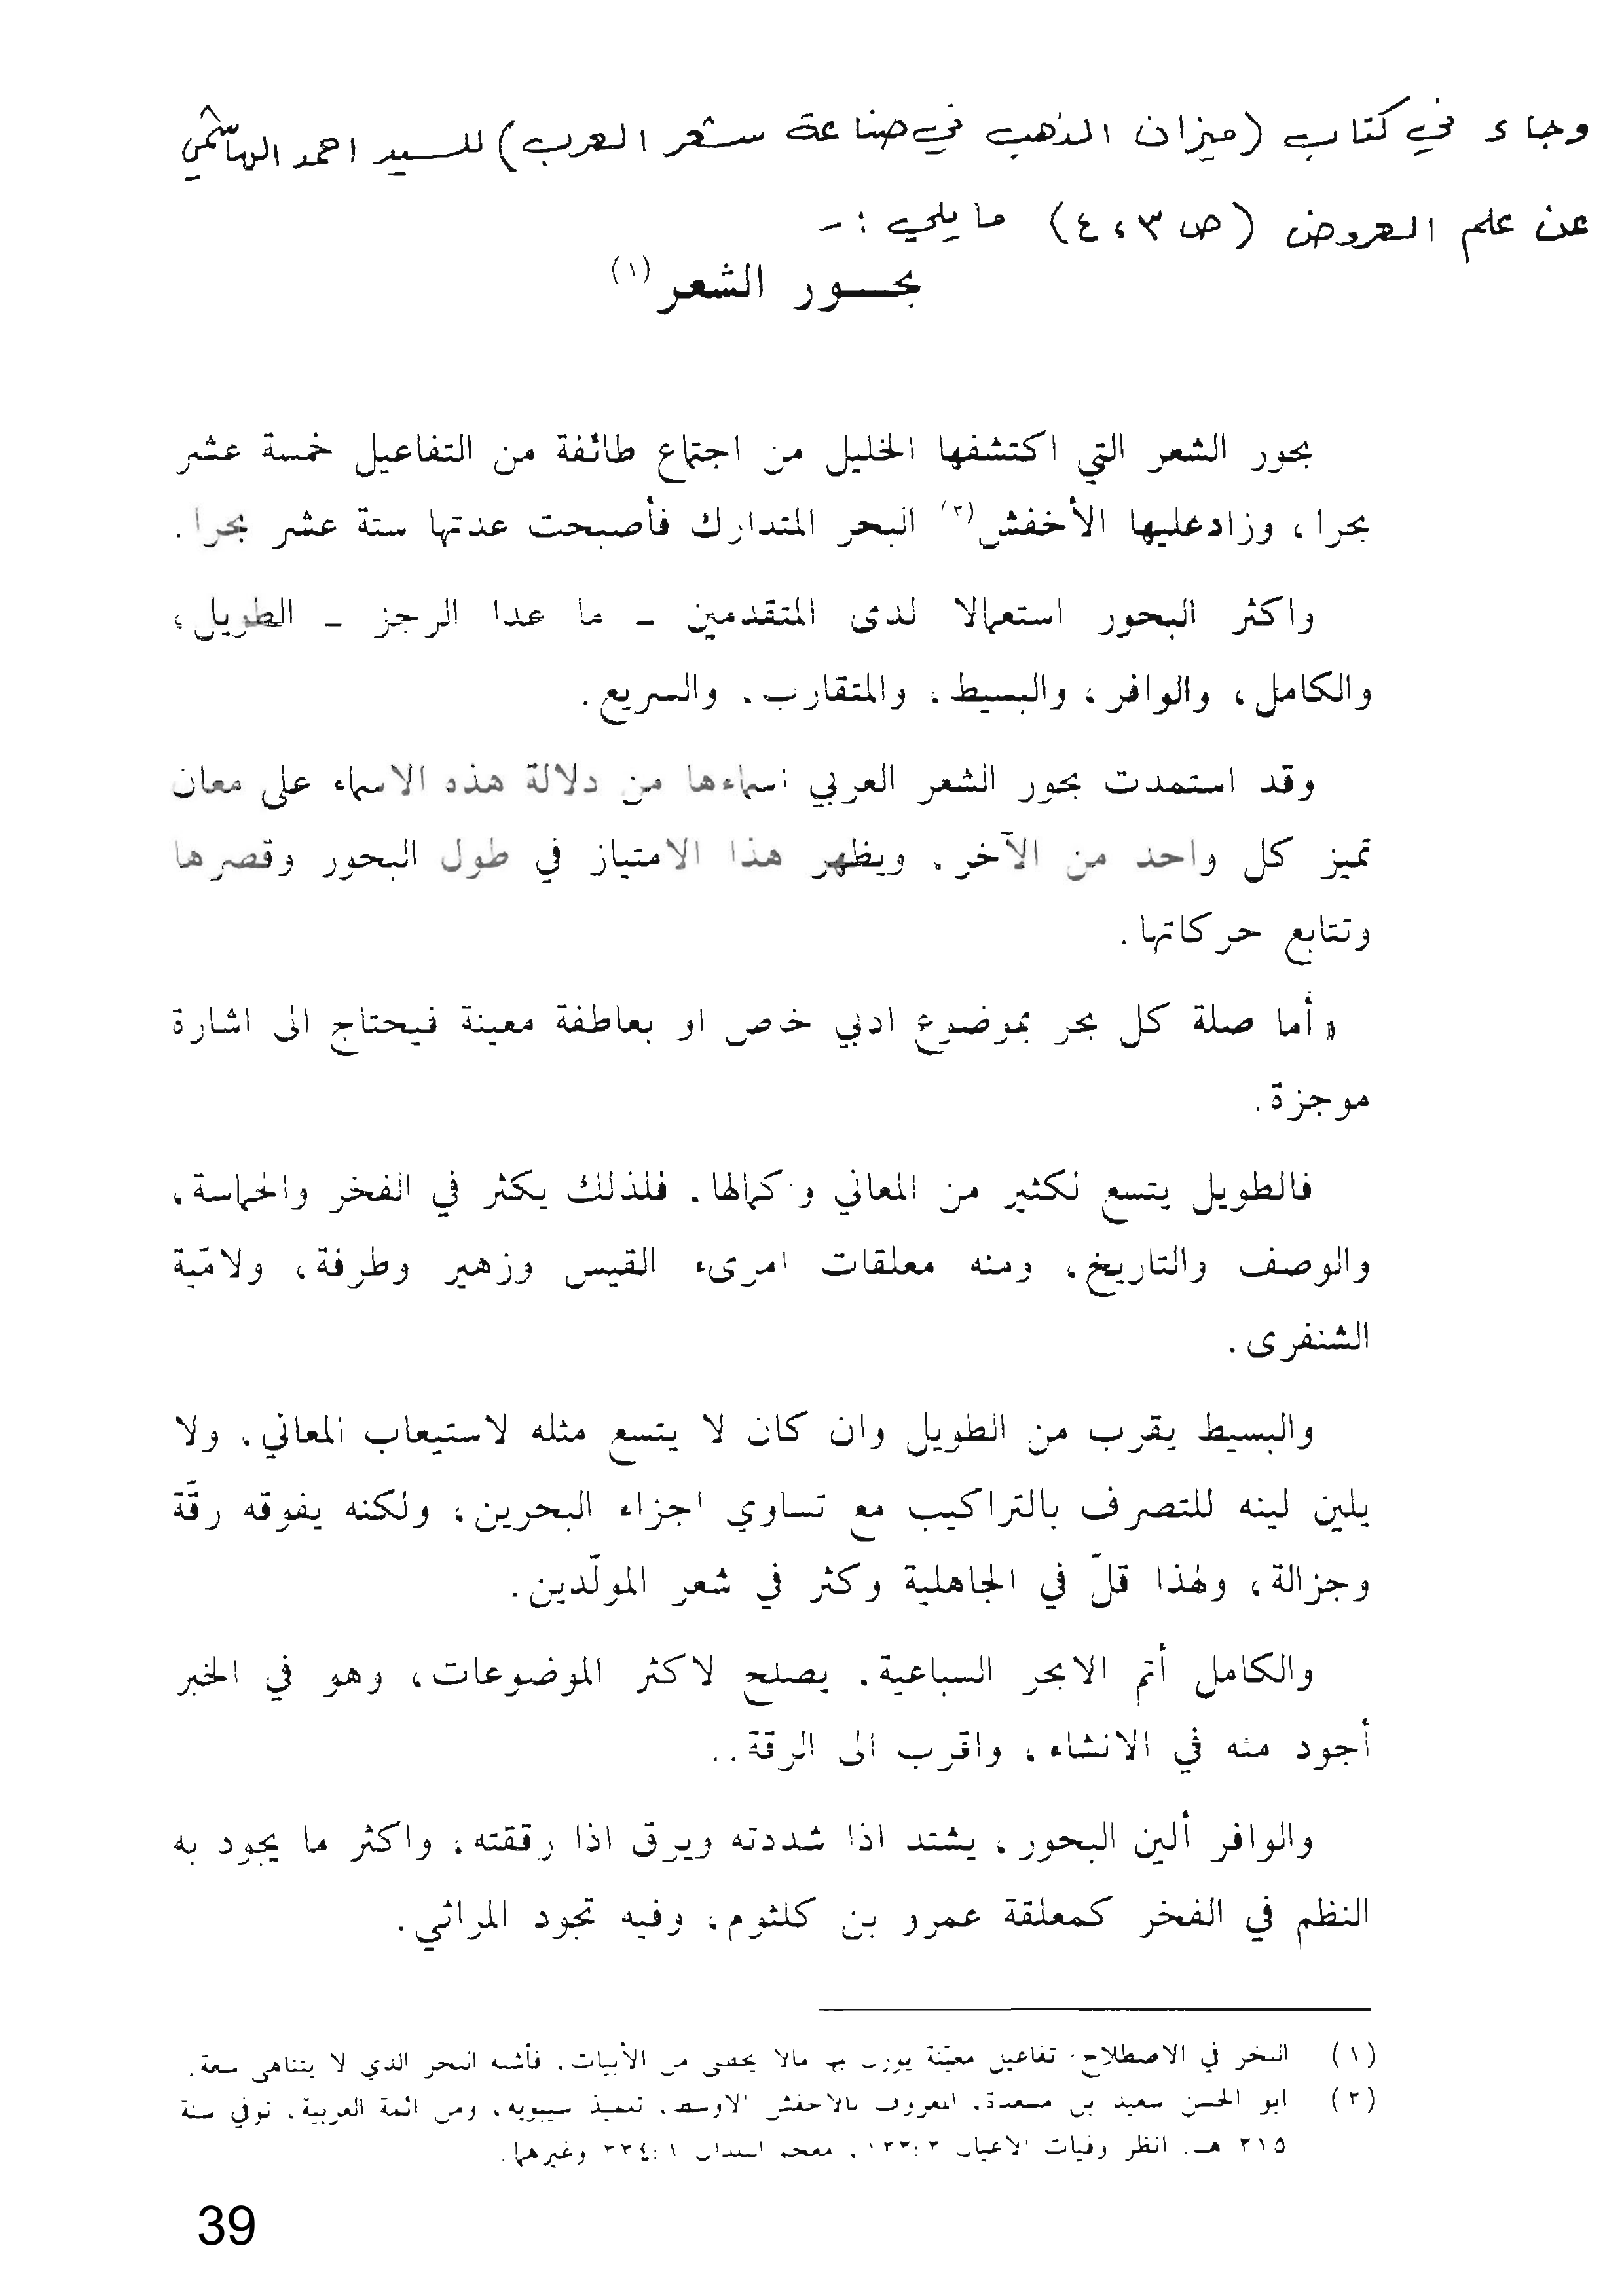 وجاء في كتاب (ميزان الذهب في صناعة شعر العرب) للسيد احمد الهاشمي
عن علم العروض (ص ٣، ٤) ما يلي :-
بحـــور الشعر (١)
بحور الشعر التي اكتشفها الخليل من اجتماع طائفة من التفاعيل خمسة عشر
بحرا، وزادعليها الأخفش (٢) البحر المتدارك فأصبحت عدتها ستة عشر بحرا.
واكثر البحور استعمالا لدى المتقدمين - ما عدا الرجز - الطويل،
والكامل، والوافر، والبسيط، والمتقارب، والسريع.
وقد استمدت بحور الشعر العربي اسماءها من دلالة هذه الاسماء على معان
تميز كل واحد من الآخر. ويظهر هذا الامتياز في طول البحور وقصرها
وتتابع حركاتها.
« أما صلة كل بحر بموضوع ادبي خاص او بعاطفة معينة فيحتاج الى اشارة
موجزة.
فالطويل يتسع لكثير من المعاني وكمالها. فلذلك يكثر في الفخر والحماسة،
والوصف والتاريخ، ومنه معلقات امرىء القيس وزهير وطرفة، ولاميّة
الشنفرى.
والبسيط يقرب من الطويل وان كان لا يتسع مثله لاستيعاب المعاني، ولا
يلين لينه للتصرف بالتراكيب مع تساوي اجزاء البحرين، ولكنه يفوقه رقّة
وجزالة، ولهذا قلّ في الجاهلية وكثر في شعر المولّدين.
والكامل أتم الابحر السباعية. يصلح لاكثر الموضوعات، وهو في الخبر
أجود منه في الانشاء، واقرب الى الرقة..
والوافر ألين البحور، يشتد اذا شددته ويرق اذا رققته، واكثر ما يجود به
النظم في الفخر كمعلقة عمرو بن كلثوم، وفيه تجود المراثي.
(١) البحر في الاصطلاح تفاعيل معيّنة يوزن بها مالا يحصى من الأبيات. فأشبه البحر الذي لا يتناهى سعة.
(٢) ابو الحسن سعيد بن مسعدة، المعروف بالاخفش الاوسط، تلميذ سيبويه، ومن ائمة العربية، توفي سنة
٣١٥ هـ. انظر وفيات الاعيان ٣: ، معجم ١: وغيرهما.
39